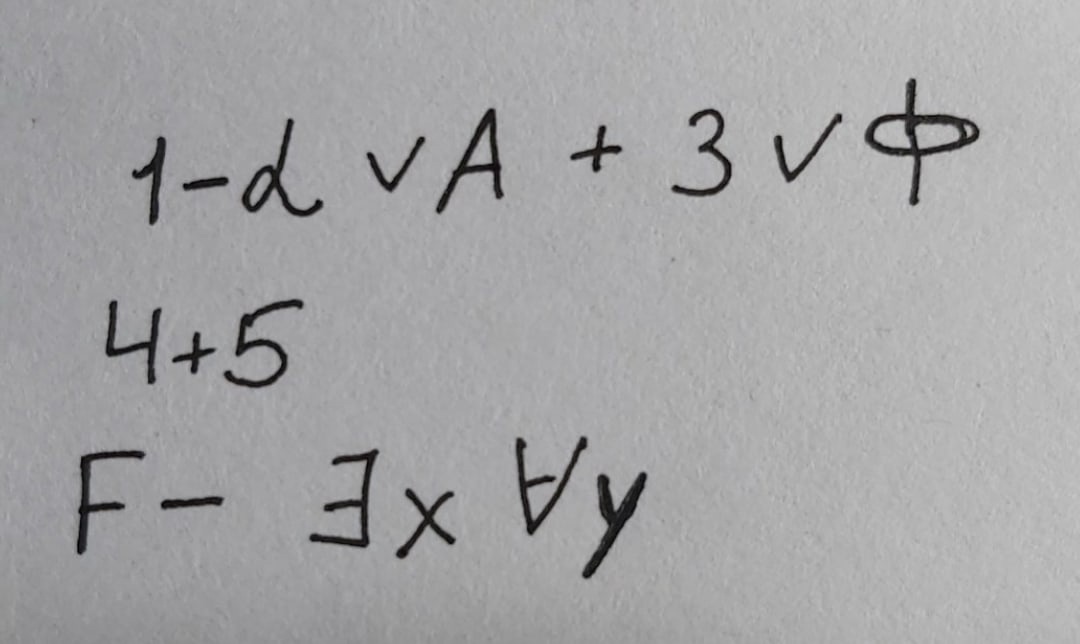 1-α ∨ A + 3 ∨ Φ
4+5
F- ∃x ∀y